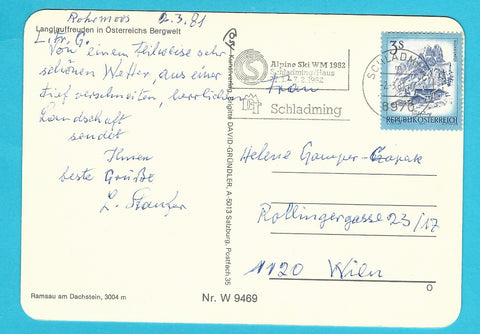 Rohrmoos 2.3.81
Langlauffreuden in Österreichs Bergwelt
L. Fr. G.
Von einem teilweise sehr
schönen Wetter, aus einer
tief verschneiten, herrlichen
Landschaft
sendet
Ihnen
beste Grüße
L.
Ramsau am Dachstein, 3004 m
Kunstverlag Brigitte DAVID-GRÜNDLER, A-5013 Salzburg, Postfach 35
Nr. W 9469
Alpine Ski WM 1982
Schladming/Haus
7.2.1982
Schladming
SCHLADMING
8970
3S
REPUBLIK ÖSTERREICH
Frau
Helene Gamper-
Rollingergasse 23/17
1120 Wien